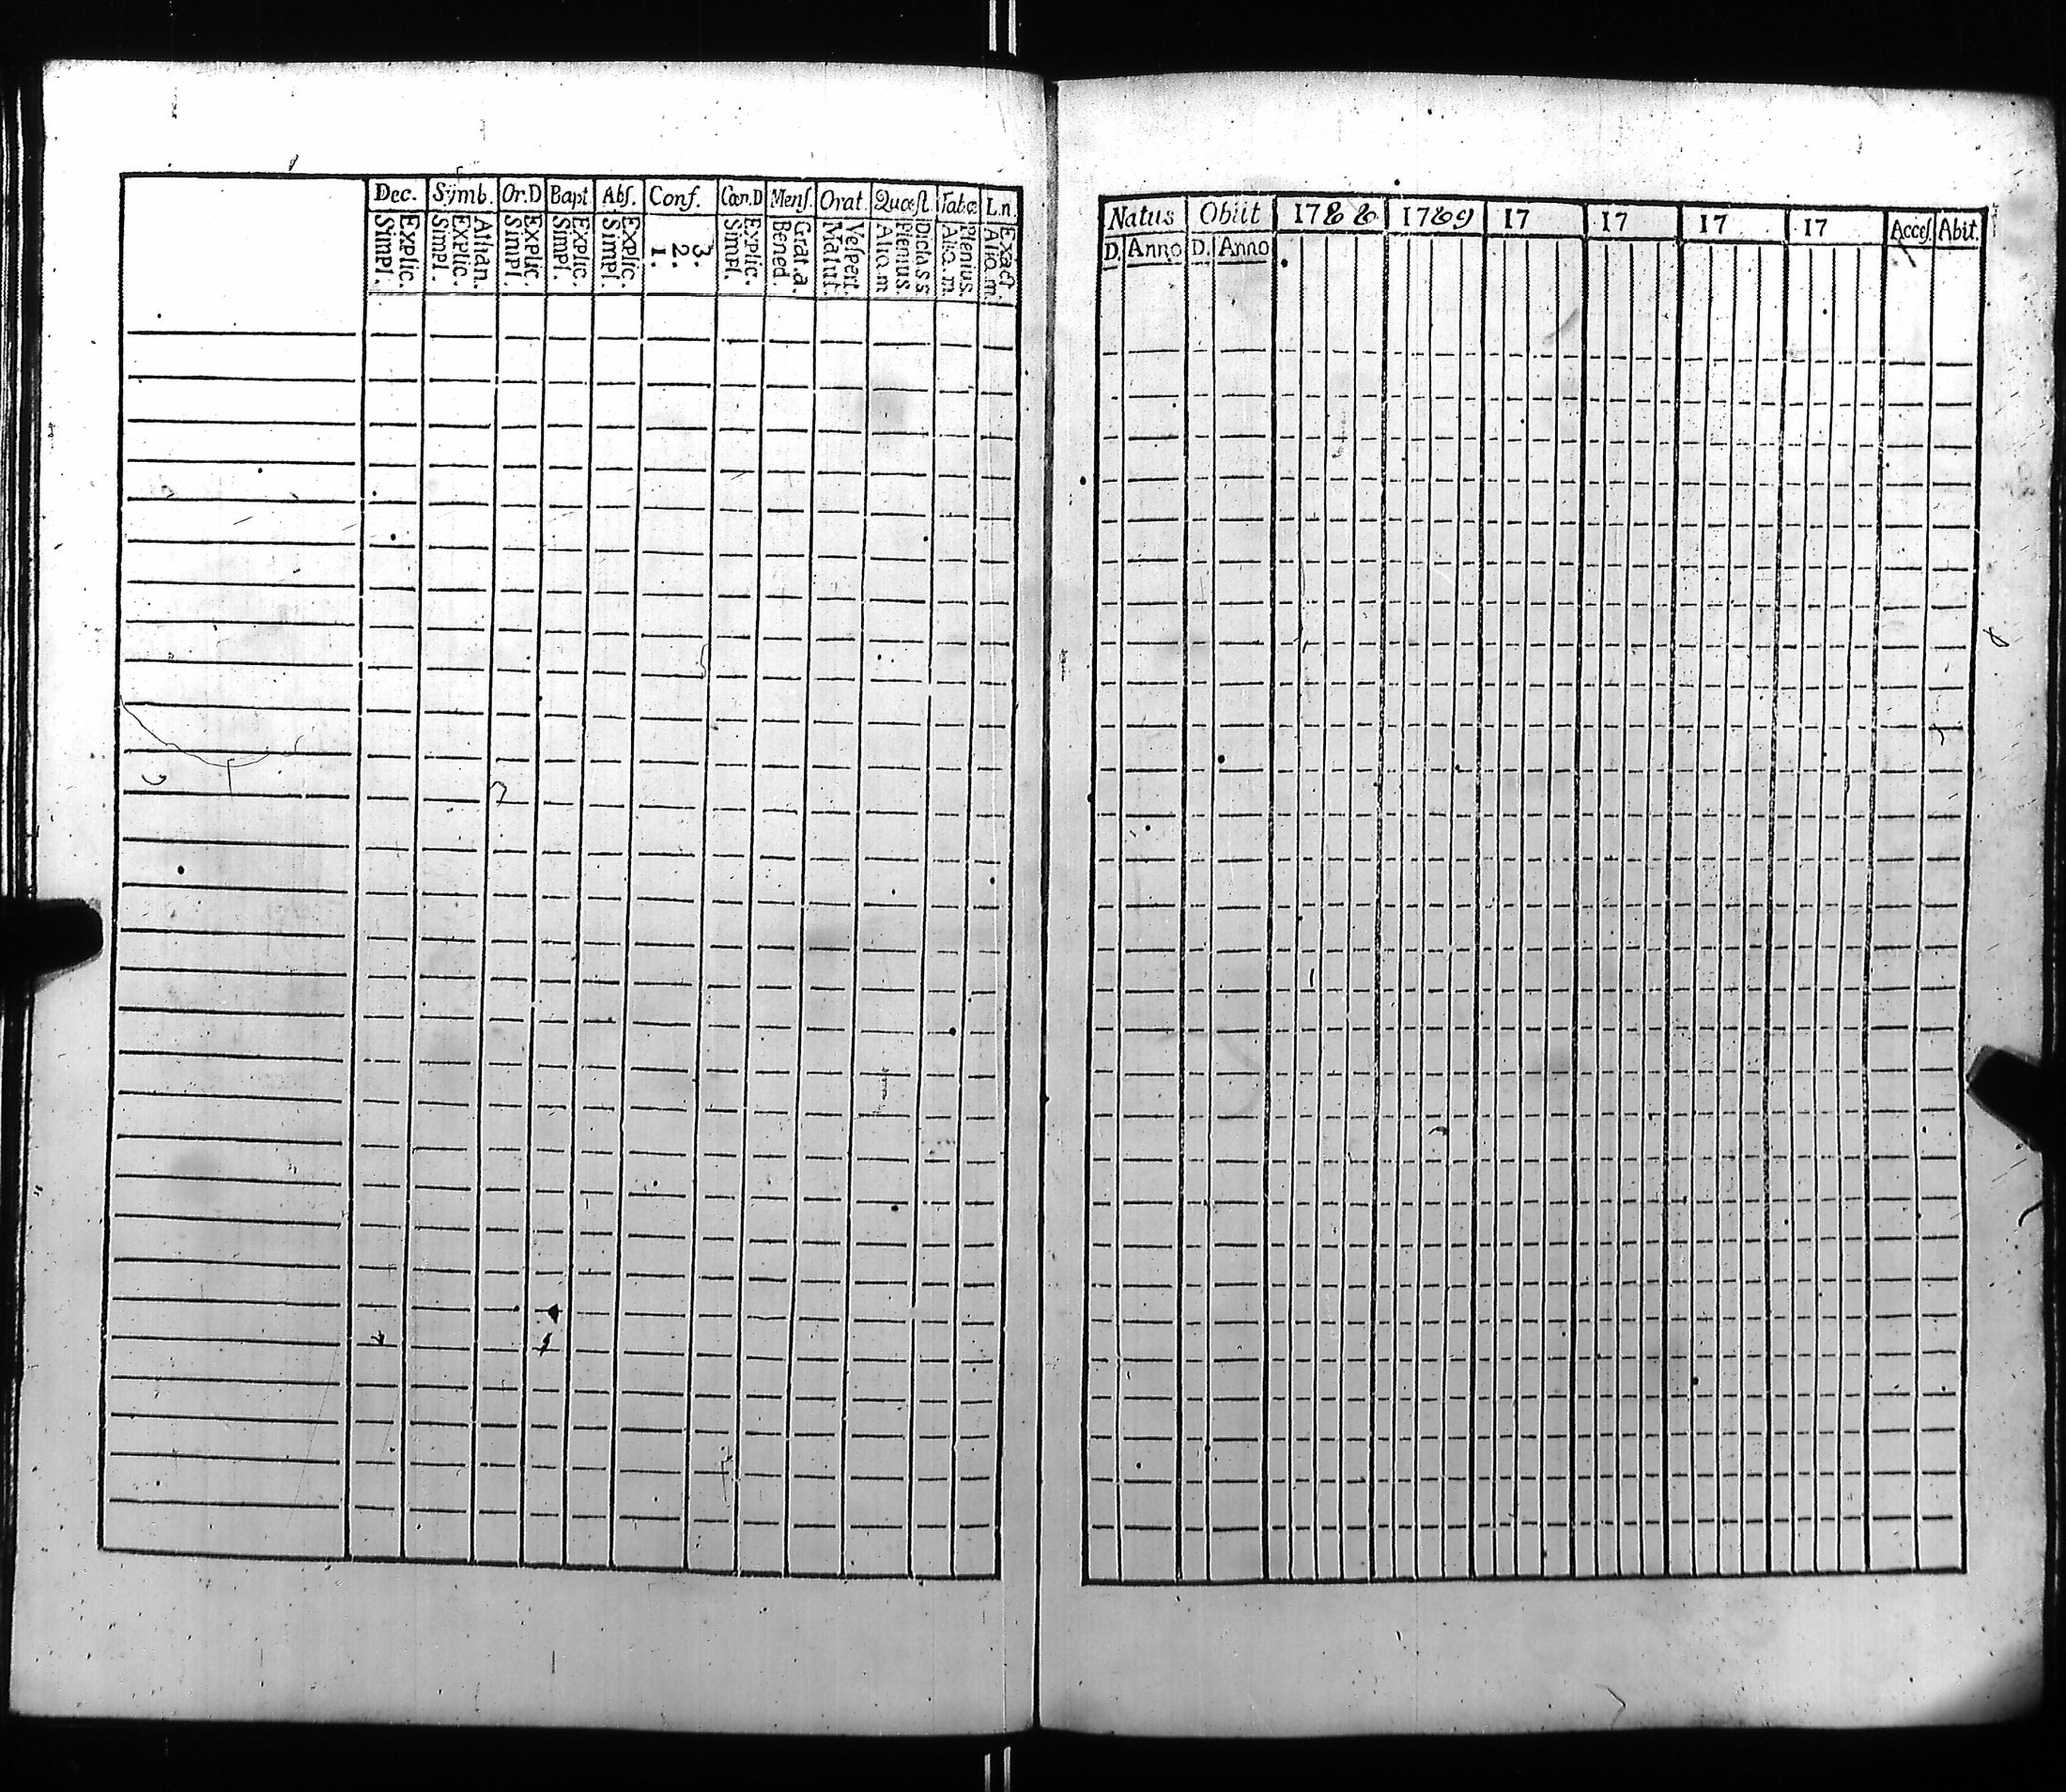 Dec. Symb. Or.D Bapt Abs. Conf. Cœn.D Mens. Orat. Quæst. Tabæ L.n.
Explic. Simpl.
Athan. Explic. Simpl.
Explic. Simpl.
Explic. Simpl.
Explic. Simpl.
3. 2. 1.
Explic. Simpl.
Grat.a. Bened.
Vespert. Matut.
Dicta.s.s. Plenius. Aliq.m
Plenius. Aliq.m.
Exact. Aliq.m.
Natus Obiit 1788 1789 17 17 17 17 Acces. Abit.
D. Anno D. Anno